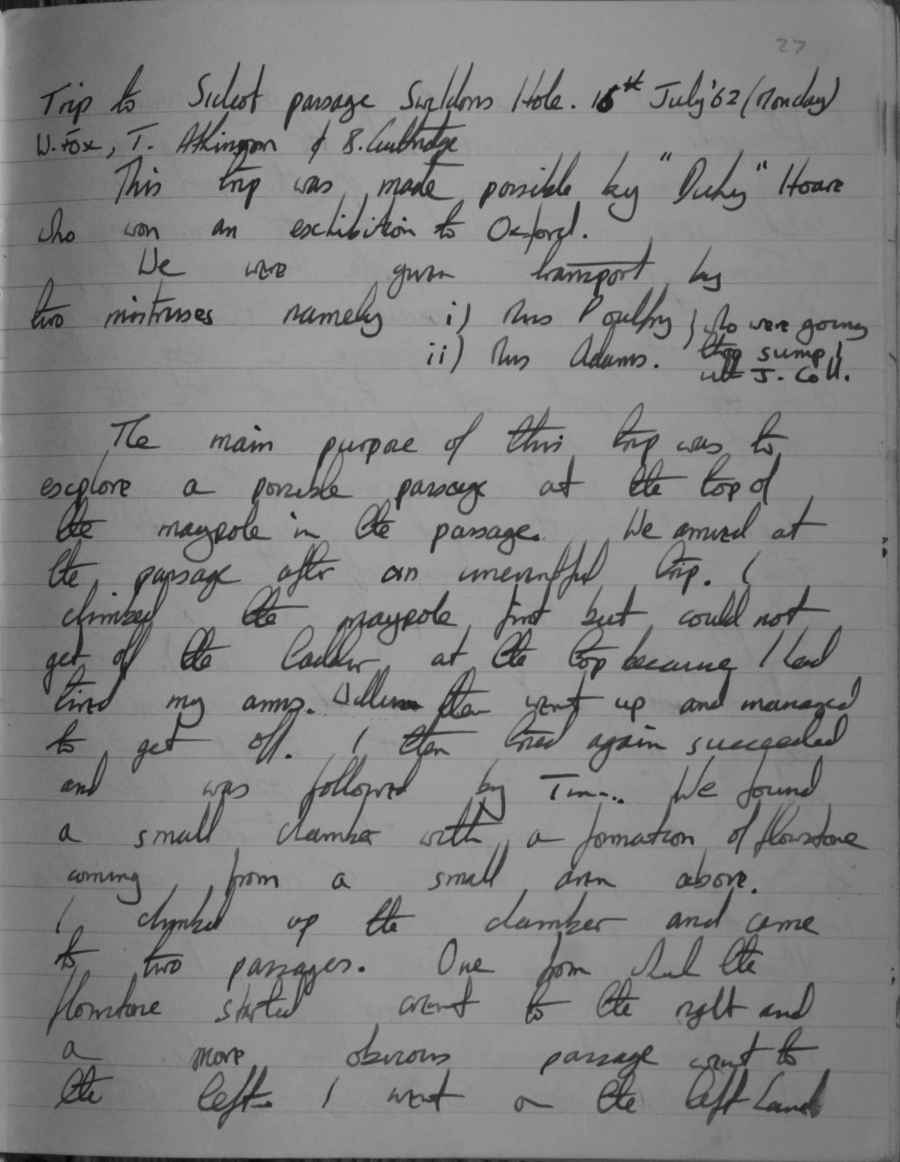 27
Trip to Sidcot passage Swildons Hole. 16th July '62 (Monday)
W. Fox, T. Atkinson & B.
This trip was made possible by "Dicky" Hoare
who won an exhibition to Oxford.
We were given transport by
two mistresses namely i) Mrs Poultry } who were going
ii) Mrs Adams. thro sump 1
with J. Coll.
The main purpose of this trip was to
explore a possible passage at the top of
the maypole in the passage. We arrived at
the passage after an uneventful trip. I
climbed the maypole first but could not
get off the ladder at the top because I had
tired my arms. William then went up and managed
to get off. I then tried again succeeded
and was followed by Tim. We found
a small chamber with a formation of flowstone
coming from a small aven above.
I climbed up the chamber and came
to two passages. One from which the
flowstone started went to the right and
a more obvious passage went to
the left. I went on the left hand